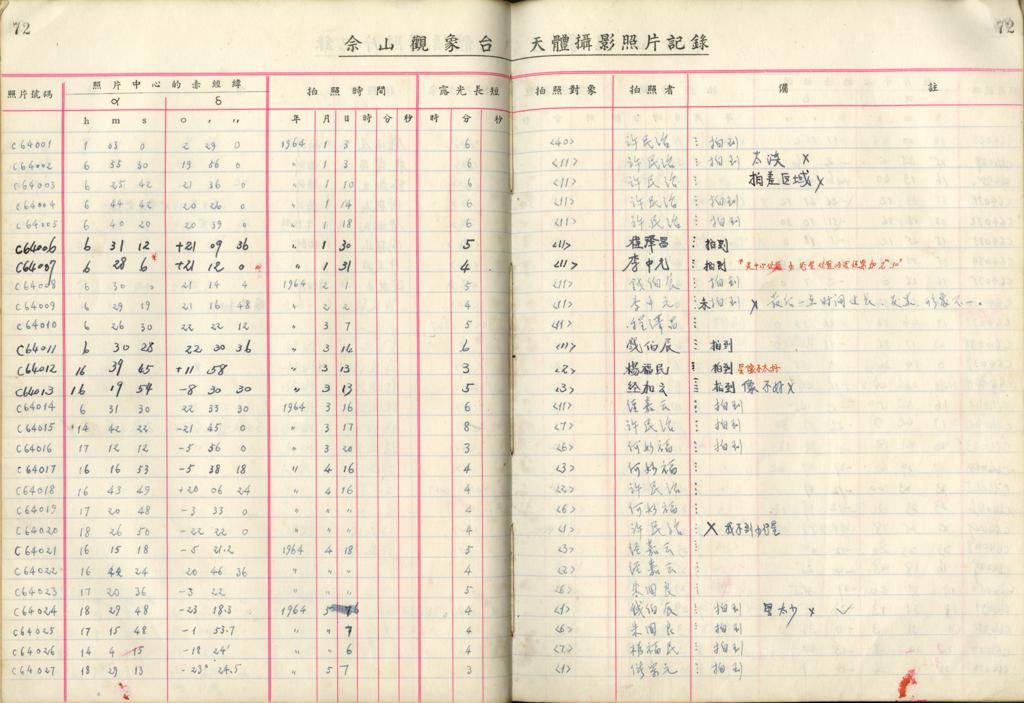 72
72
佘山觀象台 天體攝影照片記錄
照片號碼 照片中心的赤經緯 拍照時間 露光長短 拍照對象 拍照者 備 註
α δ
h m s o ' " 年 月 日 時 分 秒 時 分 秒
C64001 1 03 0 2 29 0 1964 1 3 6 <40> 许民治 拍到
C64002 6 55 30 19 56 0 " 1 3 6 <11> 许民治 拍到 太淡 x
C64003 6 25 42 21 36 0 " 1 10 6 <11> 许民治 拍差区域 x
C64004 6 44 42 20 26 0 " 1 14 6 <11> 许民治 拍到
C64005 6 40 20 20 39 0 " 1 18 6 <11> 许民治 拍到
C64006 6 31 12 +21 09 36 " 1 30 5 <11> 程澤昌 拍到
C64007 6 28 6 +21 12 0 " 1 31 4 <11> 李中元 拍到
C64008 6 30 0 21 14 4 1964 2 1 5 <11> 钱伯辰 拍到
C64009 6 29 19 21 16 48 " 2 2 4 <11> 李中元 未拍到 x
C64010 6 26 30 22 22 12 " 3 7 5 <11> 程澤昌
C64011 6 30 28 22 30 36 " 3 14 6 <11> 钱伯辰 拍到
C64012 16 39 45 +11 58 " 3 13 3 <2> 楊福民 拍到 星像不太好
C64013 16 19 54 -8 30 30 " 3 13 5 <3> 拍到 像不好 x
C64014 6 31 30 22 33 30 1964 3 16 6 <11> 拍到
C64015 14 42 22 -21 45 0 " 3 17 8 <7> 许民治 拍到
C64016 17 12 12 -5 56 0 " 3 20 3 <6> 何妙福 拍到
C64017 16 16 53 -5 38 18 " 4 16 4 <3> 何妙福
C64018 16 43 49 +20 06 24 " 4 16 4 <2> 许民治
C64019 17 20 48 -3 33 0 " " " 4 <6> 何妙福
C64020 18 26 50 -22 22 0 " " " 4 <1> 许民治 X 找不到小行星
C64021 16 15 18 -5 21.2 1964 4 18 5 <3>
C64022 16 42 24 20 46 36 " " " 4 <2>
C64023 17 20 36 -3 22 " " " 5 <6> 朱国良
C64024 18 29 48 -23 18.3 1964 5 6 4 <1> 钱伯辰 拍到 星太少 x ✓
C64025 17 15 48 -1 53.7 " 7 4 <6> 朱国良 拍到
C64026 14 4 15 -18 24' " 6 4 <7> 楊福民 拍到
C64027 18 29 13 -23° 24.5 " 5 7 3 <1> 拍到